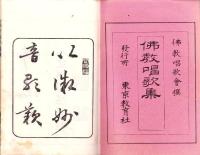 佛教唱歌會撰
佛教唱歌集
發行所 東京教育社
以微妙
音歌歎